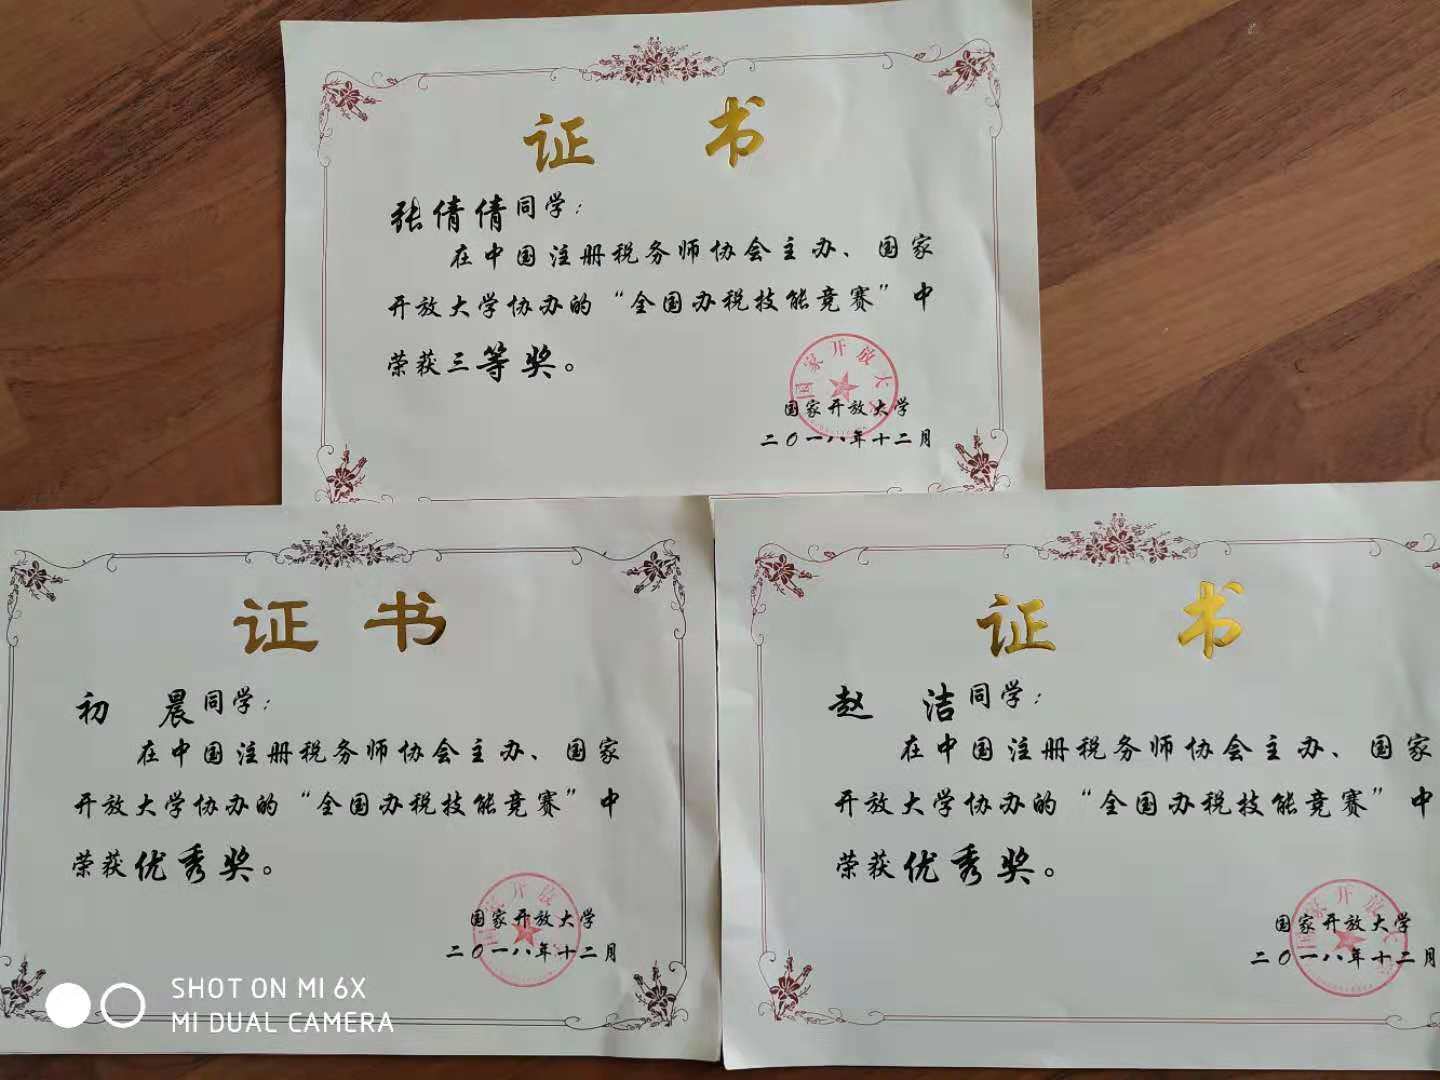 证 书
张倩倩同学：
在中国注册税务师协会主办、国家
开放大学协办的“全国办税技能竞赛”中
荣获三等奖。
国家开放大学
国家开放大学
二〇一八年十二月
证 书
初 晨同学：
在中国注册税务师协会主办、国家
开放大学协办的“全国办税技能竞赛”中
荣获优秀奖。
国家开放大学
二〇一八年十二月
证 书
赵 洁同学：
在中国注册税务师协会主办、国家
开放大学协办的“全国办税技能竞赛”中
荣获优秀奖。
国家开放大学
二〇一八年十二月
SHOT ON MI 6X
MI DUAL CAMERA